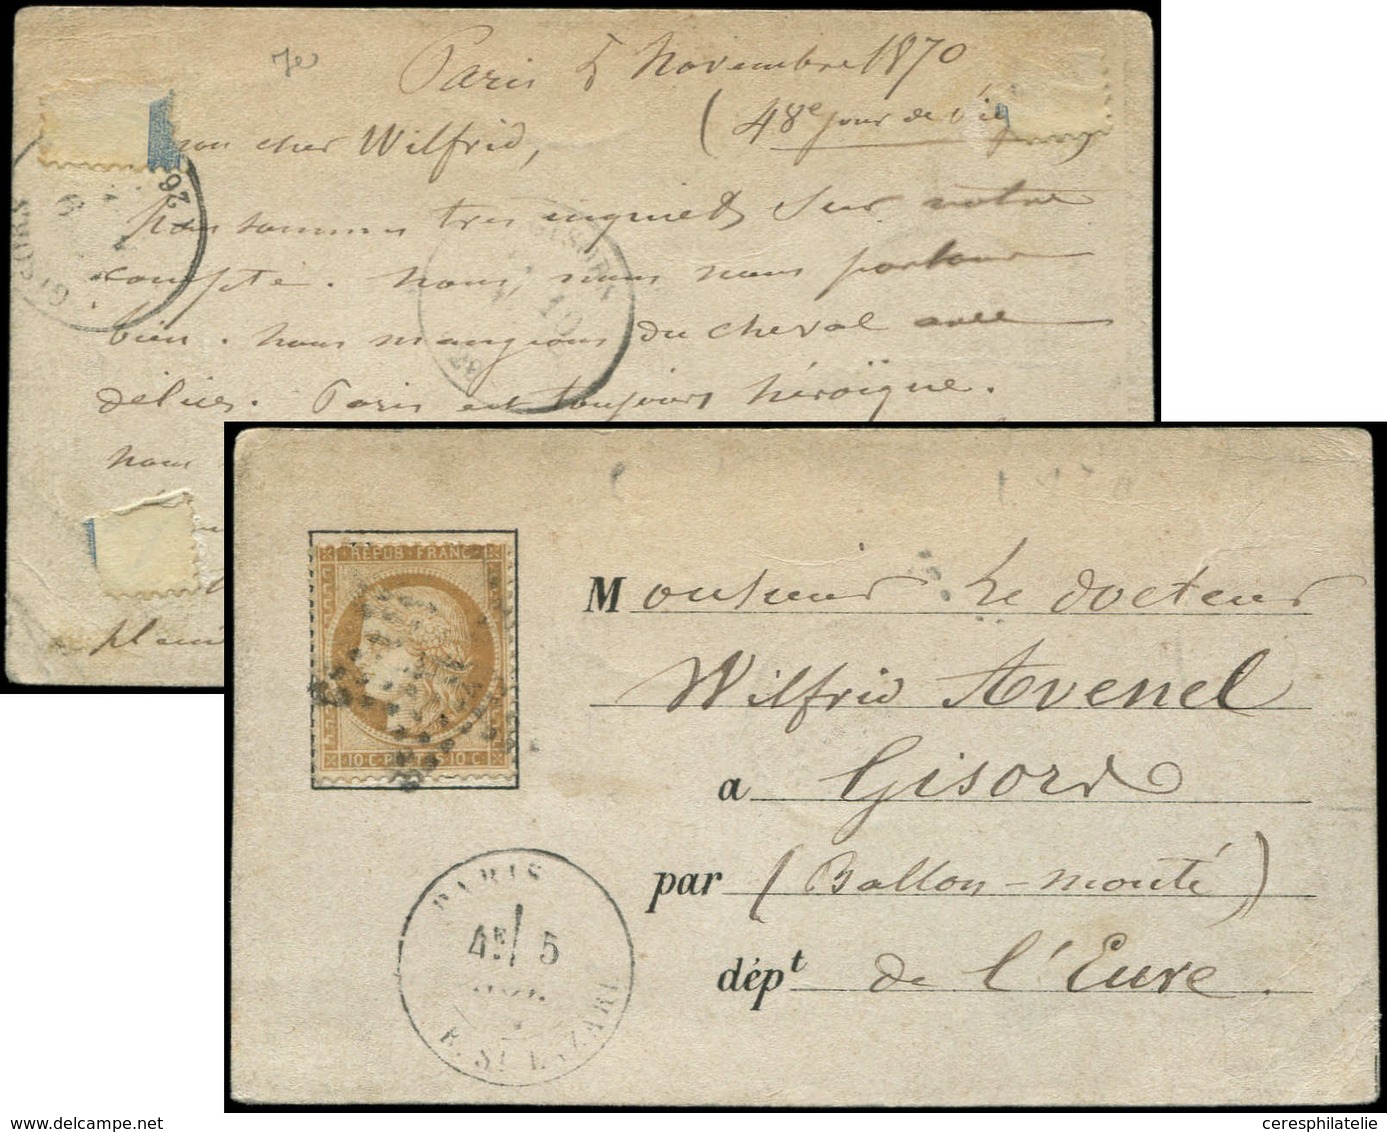 Paris 5 Novembre 1870
(48e jour de siè
mon cher Wilfrid,
Nous sommes très inquiets sur votre
compte. Nous, nous nous portons
bien. Nous mangeons du cheval avec
délices. Paris est toujours héroïque.
nous
GISORS
26
GISORS
10
REPUB. FRANC.
10 C. POSTES 10 C.
Monsieur Le docteur
Wilfrid Avenel
a Gisors
par (Ballon-monté)
dépt de l'Eure.
PARIS
4E 5
NOV.
R. ST LAZARE
www.delcampe.net
ceresphilatelie